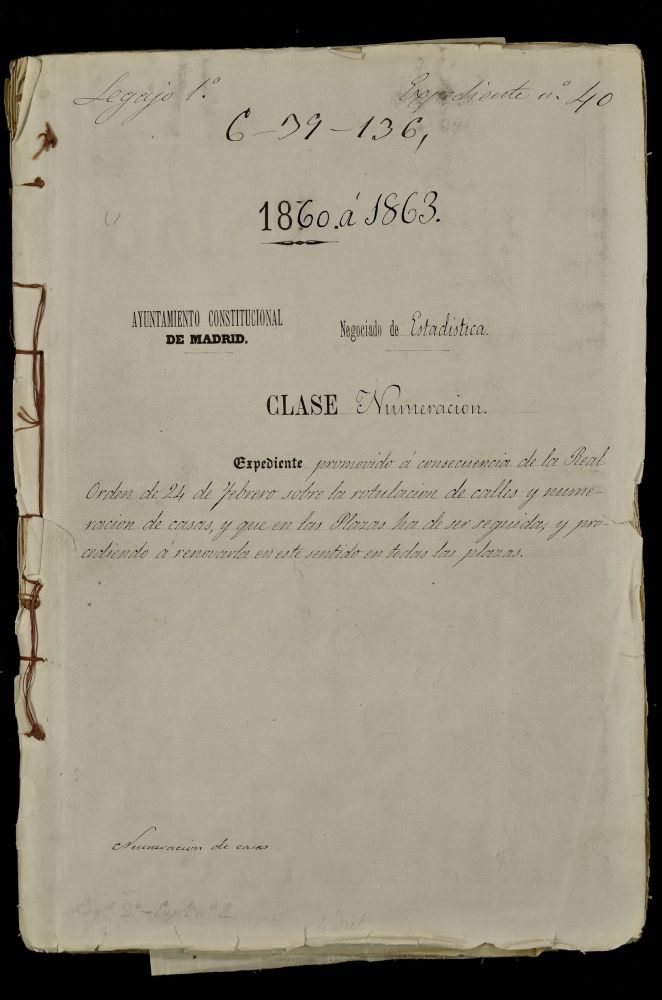 Legajo 1.º Expediente n.º 40
6-39-136,
1860. á 1863.
AYUNTAMIENTO CONSTITUCIONAL
DE MADRID.
Negociado de Estadística.
CLASE Numeracion.
Expediente promovido á consecuencia de la Real
Orden de 24 de Febrero sobre la rotulacion de calles y nume-
racion de casas, y que en las Plazas ha de ser seguida, y pro-
cediendo á renovarla en este sentido en todas las plazas.
Numeracion de casas
Leg.º 2.º - Exp.te n.º 2